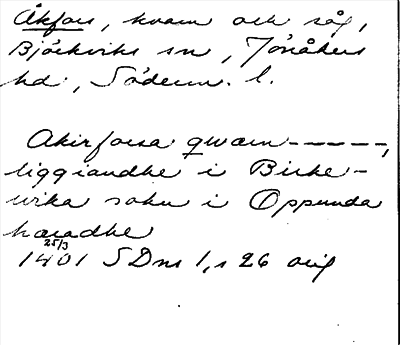 Åkfors, kvarn och såg,
Björkviks sn, Jönåkers
hd, Söderm. l.
Akirforsa qwærn-----,
liggiandhe i Birke-
wika sokn i Oppunda
hæradhe
25/3
1401 SDns 1, s 26 orig